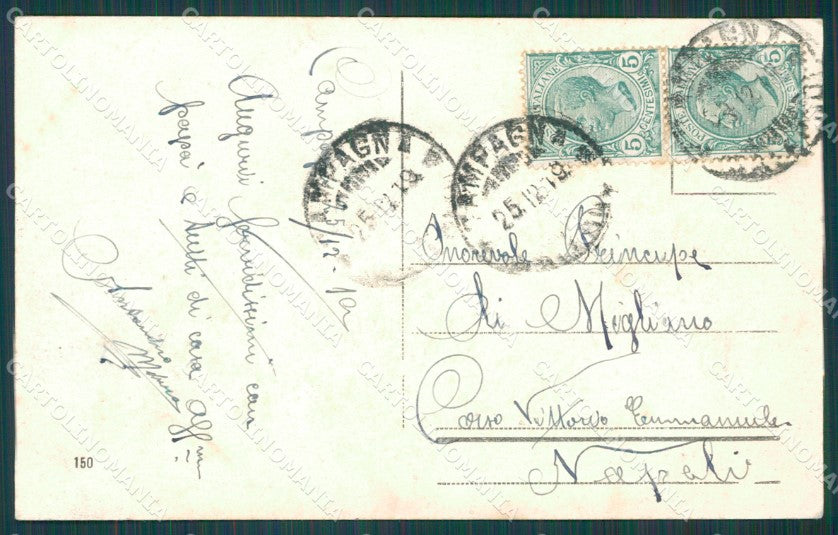 Campagna 25/12-19
Auguri grandissimi con
papà e tutti di casa aff.mi
Alessandro
150
POSTE ITALIANE
CENTESIMI 5
CAMPAGNA
25.12.19
CAMPAGNA
25.12.19
Onorevole Principe
Di Migliano
Corso Vittorio Emmanuele
Napoli
CARTOLINOMANIA